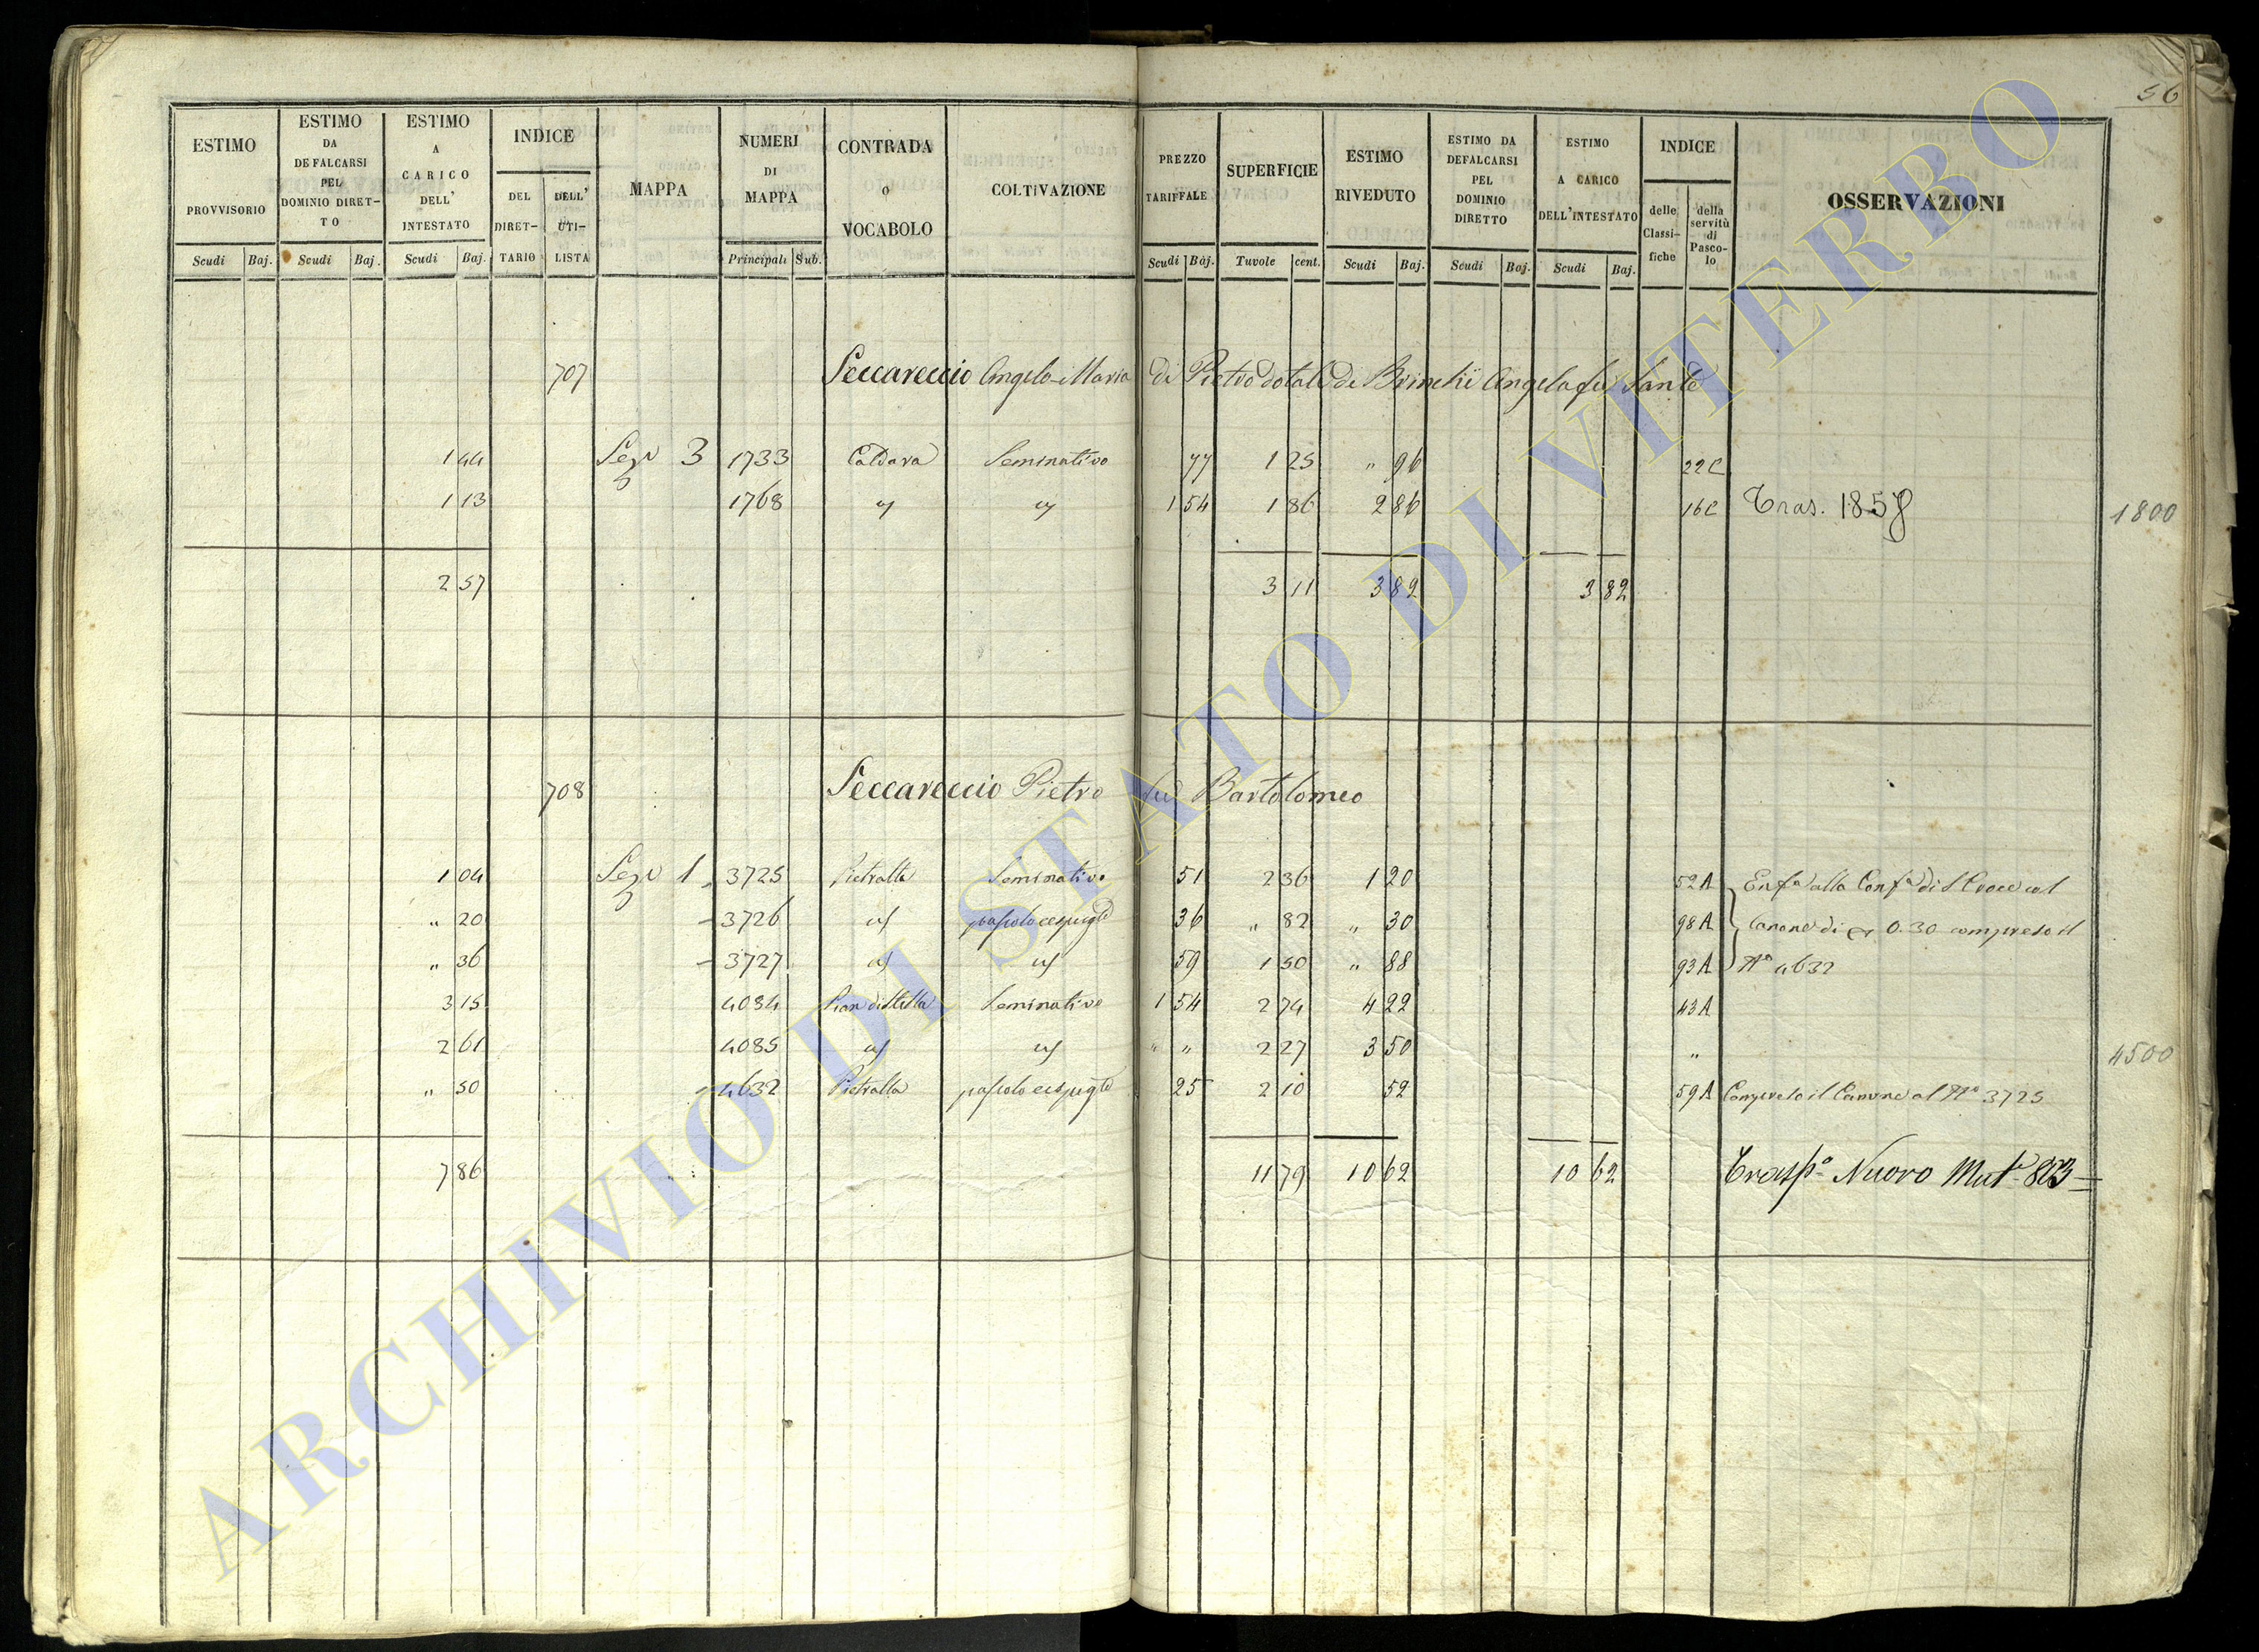 56
ESTIMO PROVVISORIO Scudi Baj.
ESTIMO DA DEFALCARSI PEL DOMINIO DIRETTO Scudi Baj.
ESTIMO A CARICO DELL' INTESTATO Scudi Baj.
INDICE DEL DIRETTARIO DELL' UTILISTA
MAPPA
NUMERI DI MAPPA Principali Sub.
CONTRADA o VOCABOLO
COLTIVAZIONE
PREZZO TARIFFALE Scudi Baj.
SUPERFICIE Tavole cent.
ESTIMO RIVEDUTO Scudi Baj.
ESTIMO DA DEFALCARSI PEL DOMINIO DIRETTO Scudi Baj.
ESTIMO A CARICO DELL'INTESTATO Scudi Baj.
INDICE delle Classifiche della servitù di Pascolo
OSSERVAZIONI
707 Seccareccio Angelo Maria di Pietro dotale de Brinchi Angela fu Santo
1 44 Sez 3 1733 Caldara Seminativo 77 1 25 " 96 22C
1 13 1768 " " 1 54 1 86 2 86 16C Tras. 1857 1800
2 57 3 11 3 82 3 82
708 Seccareccio Pietro fu Bartolomeo
1 04 Sez 1 3725 Pietralta Seminativo 51 2 36 1 20 52A Enfa alla Confa di S Croce col
" 20 3726 " pascolo cespugto 36 " 82 " 30 98A Canone di 0.30 compreso il
" 36 3727 " " 59 1 50 " 88 93A No 4632
3 15 4084 Pian di Stella Seminativo 1 54 2 74 4 22 43A
2 61 4085 " " " " 2 27 3 50 "
" 50 4632 Pietralta pascolo cespugto 25 2 10 52 59A Compreso il Canone al No 3725 4500
7 86 11 79 10 62 10 62 Traspo Nuovo Mute
ARCHIVIO DI STATO DI VITERBO